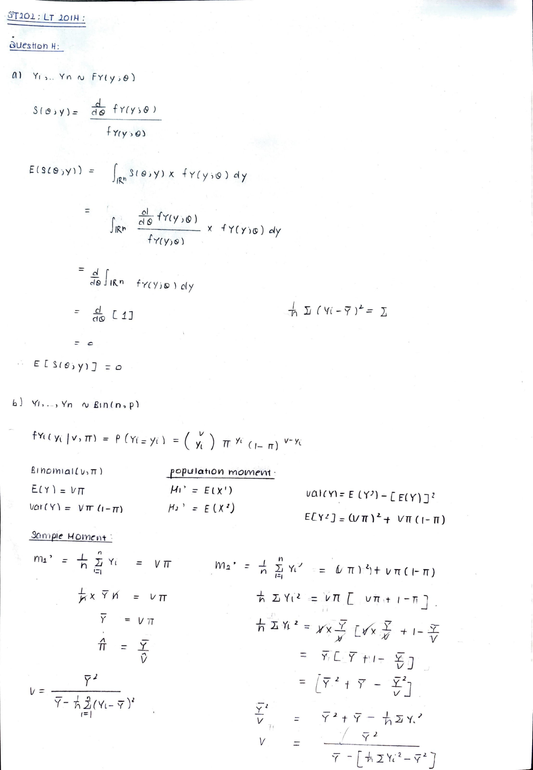 ST202 : LT 2014 :
Question 4 :
a) Y1,.. Yn ~ FY(y;θ)
S(θ;y) = d/dθ fY(y;θ) / fY(y;θ)
E(S(θ;y)) = ∫ℝⁿ S(θ,y) × fY(y;θ) dy
= ∫ℝⁿ d/dθ fY(y;θ) / fY(y;θ) × fY(y;θ) dy
= d/dθ ∫ℝⁿ fY(y;θ) dy
= d/dθ [1]
1/n Σ (Yi - Ȳ)² = Σ
= 0
∴ E[S(θ;y)] = 0
b) Y1,..., Yn ~ Bin(n,p)
fYi(yi|v,π) = P(Yi = yi) = (v yi) π^yi (1-π)^v-yi
Binomial(v,π)
E(Y) = vπ
Var(Y) = vπ(1-π)
population moment :
μ1' = E(X')
μ2' = E(X²)
Var(Y) = E(Y²) - [E(Y)]²
E[Y²] = (vπ)² + vπ(1-π)
Sample Moment :
m1' = 1/n Σ i=1 n Yi = vπ
1/n × Ȳ n = vπ
Ȳ = vπ
π̂ = Ȳ/v̂
v = Ȳ² / Ȳ - 1/n Σ i=1 (Yi - Ȳ)²
m2' = 1/n Σ i=1 n Yi² = (vπ)² + vπ(1-π)
1/n Σ Yi² = vπ [ vπ + 1 - π ]
1/n Σ Yi² = v × Ȳ/v [v × Ȳ/v + 1 - Ȳ/v
= Ȳ [ Ȳ + 1 - Ȳ/v ]
= [Ȳ² + Ȳ - Ȳ²/v]
Ȳ²/v = Ȳ² + Ȳ - 1/n Σ Yi²
v = Ȳ² / Ȳ - [1/n Σ Yi² - Ȳ²]